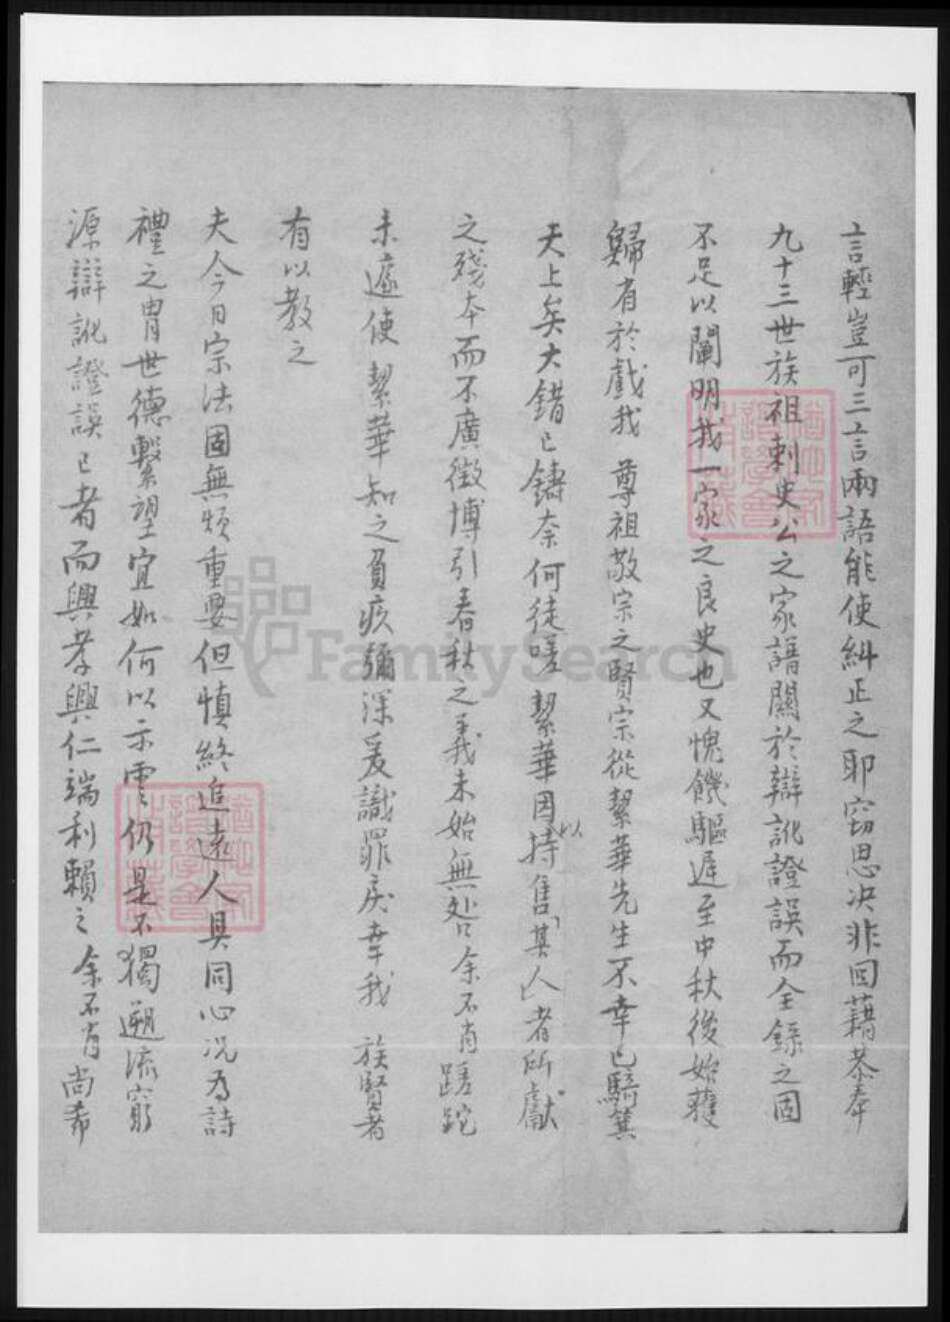 言輕豈可三言兩語能使糾正之耶竊思決非回藉恭奉
九十三世族祖刺史公之家譜關於辯訛證誤而全錄之固
不足以闡明我一家之良史也又愧饑驅遲至中秋後始獲
歸省於戲我 尊祖敬宗之賢宗從絜華先生不幸已騎箕
天上矣大錯已鑄奈何徒嗟絜華因持以售其人者所獻
之殘本而不廣徵博引春秋之義未始無处口余不肖蹉跎
未遽使絜華知之負疚彌深爰識罪戾幸我 族賢者
有以教之
夫今日宗法固無煩重要但慎終追遠人具同心况為詩
禮之胄世德繫望宜如何以示雲仍是不獨遡流窮
源辯訛證誤已者而興孝興仁端利賴之余不肖尚希
FamilySearch